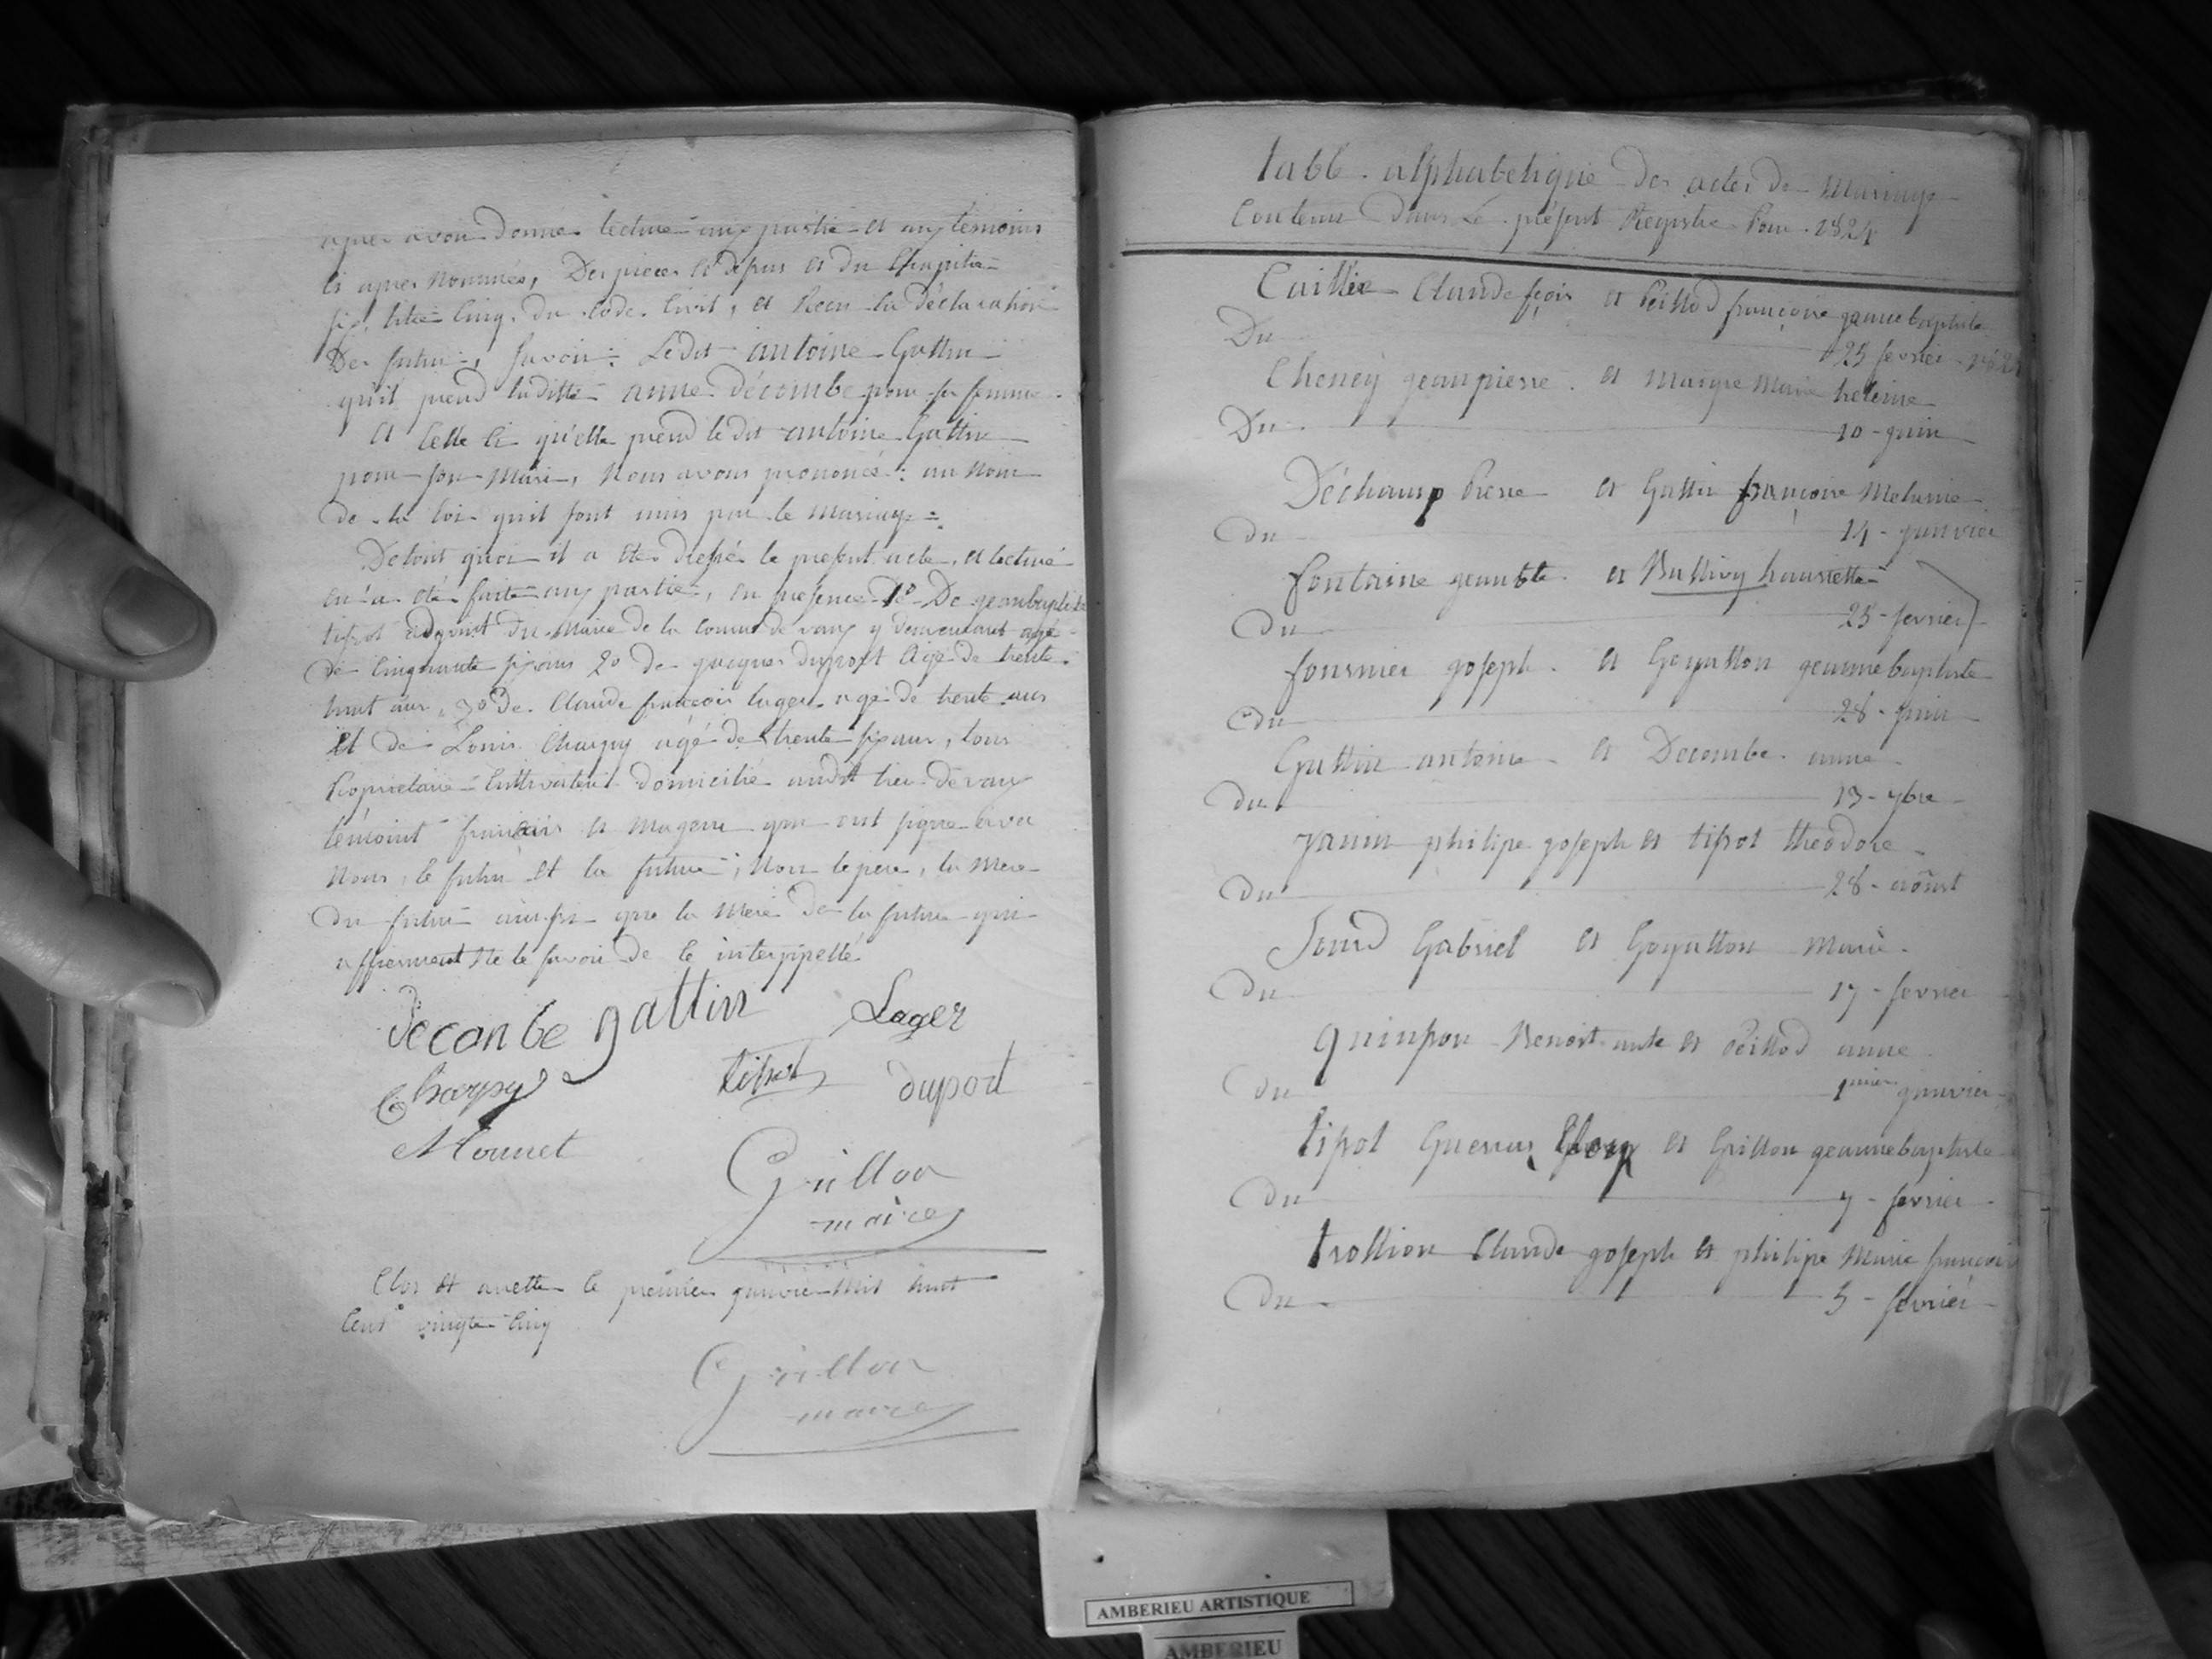 après avoir donné lecture aux partie et aux témoins
ci après nommés, des pièces ci dessus et du chapitre
six, titre cinq. du code. civil, et Recu la déclaration
Des futur, savoir: Ledit antoine Gattin
qu'il prend laditte anne décombe pour sa femme
et Celle ci qu'elle prend ledit antoine Gattin
pour son Mari, Nous avons prononcé: au Nom
de la loi qu'il sont unis par le mariage
De tout quoi il a été dressé le present acte, et lecture
en a été faite aux partie, en presence 1º De geanbaptiste
tissot adjoint du Maire de la comune de vaux y demeurant agé
de cinquante six ans 2º de jacques duport Agé de trente
huit ans, 3º de Claude françois lager agé de trente ans
Et de Louis Charpy agé de trente six ans, tous
Propriétaire Cultivateur domicilié audit lieu de vaux
témoins français et mageur qui ont signé avec
Nous, le futur et la future, Non le pere, la Mere
du futur aussi que la Mere de la future qui
affirment Ne le savoir de ce interppellé
decombe gattin Lager
Charpy tissot duport
Mounet
Guillon
maire
Clos et arette le premier janvier Mil huit
Cent vingte cinq
Guillon
maire
table alphabetique des actes de Mariage
Contenus Dans Le présent Registre Pour 1824
Cuillier Claude fçois et Peillod françoise geanne baptiste
Du 25 fevrier 1824
Cheney geanpierre et maigre Marie heleine
Du 10 - juin
Déchamp Pierre et Gattin françoise Melanie
du 14 - janvier
fontaine geanbte et Bullivy hanriette
du 25 - fevrier
fournier joseph et Goyatton geanne baptiste
du 28 - juin
Gattin antoine et Decombe anne
du 13 - 9bre
janin philipe joseph et tissot théodore
du 28 - aôust
Jund Gabriel et Goyatton Marie
du 17 - fevrier
quinson Benoit ante et Peillod anne
du 1er janvier
tissot et Grillon geannebaptiste
du 7 - fevrier
trollion Claude joseph et philipe Marie françoi
du 5 - fevrier
AMBERIEU ARTISTIQUE
AMBERIEU